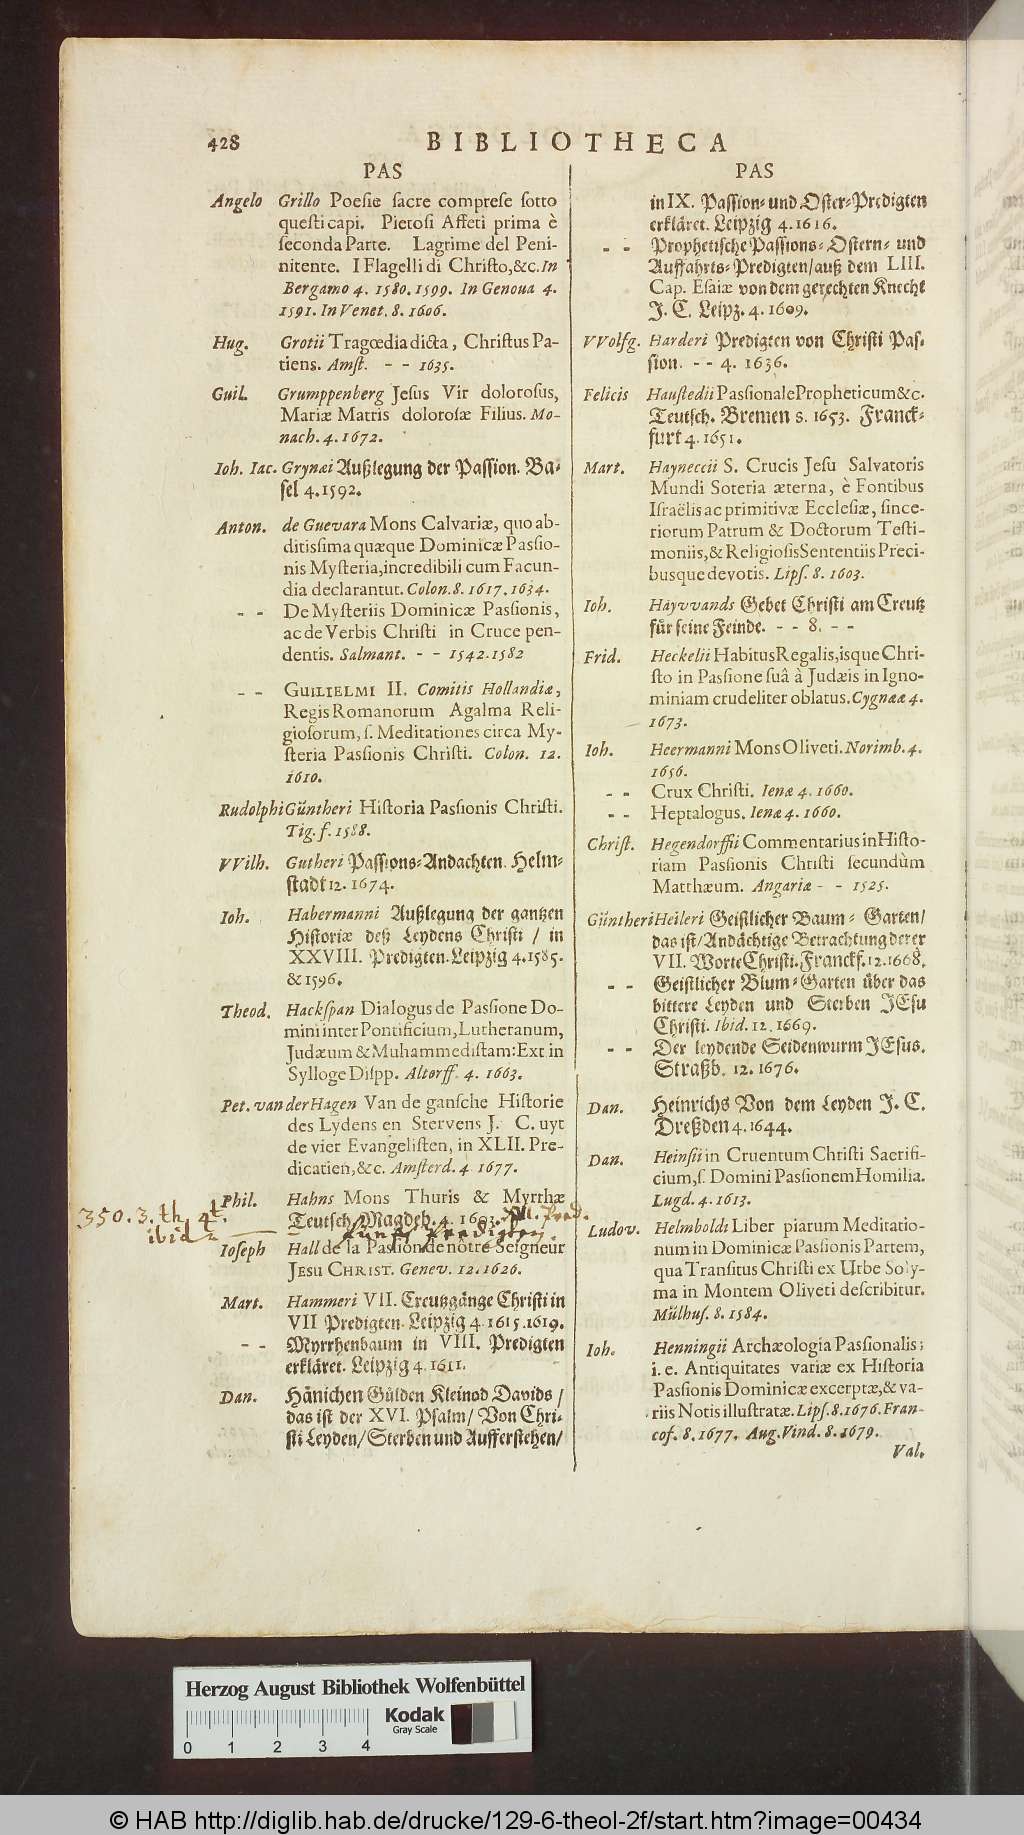 428 BIBLIOTHECA
PAS
Angelo Grillo Poesie sacre comprese sotto
questi capi. Pietosi Affeti prima è
seconda Parte. Lagrime del Peni-
nitente. I Flagelli di Christo,&c. In
Bergamo 4. 1580. 1599. In Genoua 4.
1591. In Venet. 8. 1606.
Hug. Grotii Tragœdia dicta, Christus Pa-
tiens. Amst. - - 1635.
Guil. Grumppenberg Jesus Vir dolorosus,
Mariæ Matris dolorosæ Filius. Mo-
nach. 4. 1672.
Ioh. Iac. Grynæi Außlegung der Passion. Ba-
sel 4. 1592.
Anton. de Guevara Mons Calvariæ, quo ab-
ditissima quæque Dominicæ Passio-
nis Mysteria, incredibili cum Facun-
dia declarantur. Colon. 8. 1617. 1634.
- - De Mysteriis Dominicæ Passionis,
ac de Verbis Christi in Cruce pen-
dentis. Salmant. - - 1542. 1582
- - GUILIELMI II. Comitis Hollandiæ,
Regis Romanorum Agalma Reli-
giosorum, s. Meditationes circa My-
steria Passionis Christi. Colon. 12.
1610.
Rudolphi Güntheri Historia Passionis Christi.
Tig. f. 1588.
VVilh. Gutheri Passions-Andachten. Helm-
stadt 12. 1674.
Ioh. Habermanni Außlegung der gantzen
Historiæ deß Leydens Christi / in
XXVIII. Predigten. Leipzig 4. 1585.
& 1596.
Theod. Hackspan Dialogus de Passione Do-
mini inter Pontificium, Lutheranum,
Judæum & Muhammedistam: Ext in
Sylloge Dispp. Altorff. 4. 1663.
Pet. van der Hagen Van de gansche Historie
des Lydens en Stervens J. C. uyt
de vier Evangelisten, in XLII. Pre-
dicatien, &c. Amsterd. 4. 1677.
Phil. Hahns Mons Thuris & Myrrhæ
350. 3. th. 4t. Teutsch. Magdeb. 4. 1603.
ibid fünff Predigten.
Ioseph Hall de la Passion de nôtre Seigneur
JESU CHRIST. Genev. 12. 1626.
Mart. Hammeri VII. Creutzgänge Christi in
VII Predigten. Leipzig 4. 1615. 1619.
- - Myrrhenbaum in VIII. Predigten
erkläret. Leipzig 4. 1611.
Dan. Hänichen Gülden Kleinod Davids /
das ist der XVI. Psalm / Von Chri-
sti Leyden / Sterben und Aufferstehen /
PAS
in IX. Passion- und Oster-Predigten
erkläret. Leipzig 4. 1616.
- - Prophetische Passions- Ostern- und
Auffahrts-Predigten / auß dem LIII.
Cap. Esaiæ von dem gerechten Knecht
J. C. Leipz. 4. 1609.
VVolfg. Harderi Predigten von Christi Pas-
sion. - - 4. 1636.
Felicis Haustedii Passionale Propheticum &c.
Teutsch. Bremen 8. 1653. Franck-
furt 4. 1651.
Mart. Hayneccii S. Crucis Jesu Salvatoris
Mundi Soteria æterna, è Fontibus
Israëlis ac primitivæ Ecclesiæ, since-
riorum Patrum & Doctorum Testi-
moniis, & Religiosis Sententiis Preci-
busque devotis. Lips. 8. 1603.
Ioh. Hayvvands Gebet Christi am Creutz
für seine Feinde. - - 8. - -
Frid. Heckelii Habitus Regalis, isque Chri-
sto in Passione suâ à Judæis in Igno-
miniam crudeliter oblatus. Cygneæ 4.
1673.
Ioh. Heermanni Mons Oliveti. Norimb. 4.
1656.
- - Crux Christi. Ienæ 4. 1660.
- - Heptalogus. Ienæ 4. 1660.
Christ. Hegendorffii Commentarius in Histo-
riam Passionis Christi secundùm
Matthæum. Angariæ - - 1525.
Güntheri Heileri Geistlicher Baum- Garten /
das ist / Andächtige Betrachtung derer
VII. Worte Christi. Franckf. 12. 1668.
- - Geistlicher Blum-Garten über das
bittere Leyden und Sterben JEsu
Christi. Ibid. 12. 1669.
- - Der leydende Seidenwurm JEsus.
Straßb. 12. 1676.
Dan. Heinrichs Von dem Leyden J. C.
Dreßden 4. 1644.
Dan. Heinsii in Cruentum Christi Sacrifi-
cium, s. Domini Passionem Homilia.
Lugd. 4. 1613.
Ludov. Helmboldt Liber piarum Meditatio-
num in Dominicæ Passionis Partem,
qua Transitus Christi ex Urbe Soly-
ma in Montem Oliveti describitur.
Mülhus. 8. 1584.
Ioh. Henningii Archæologia Passionalis;
i. e. Antiquitates variæ ex Historia
Passionis Dominicæ excerptæ, & va-
riis Notis illustratæ. Lips. 8. 1676. Fran-
cof. 8. 1677. Aug. Vind. 8. 1679.
Val.
Herzog August Bibliothek Wolfenbüttel
Kodak
Gray Scale
0 1 2 3 4
© HAB http://diglib.hab.de/drucke/129-6-theol-2f/start.htm?image=00434